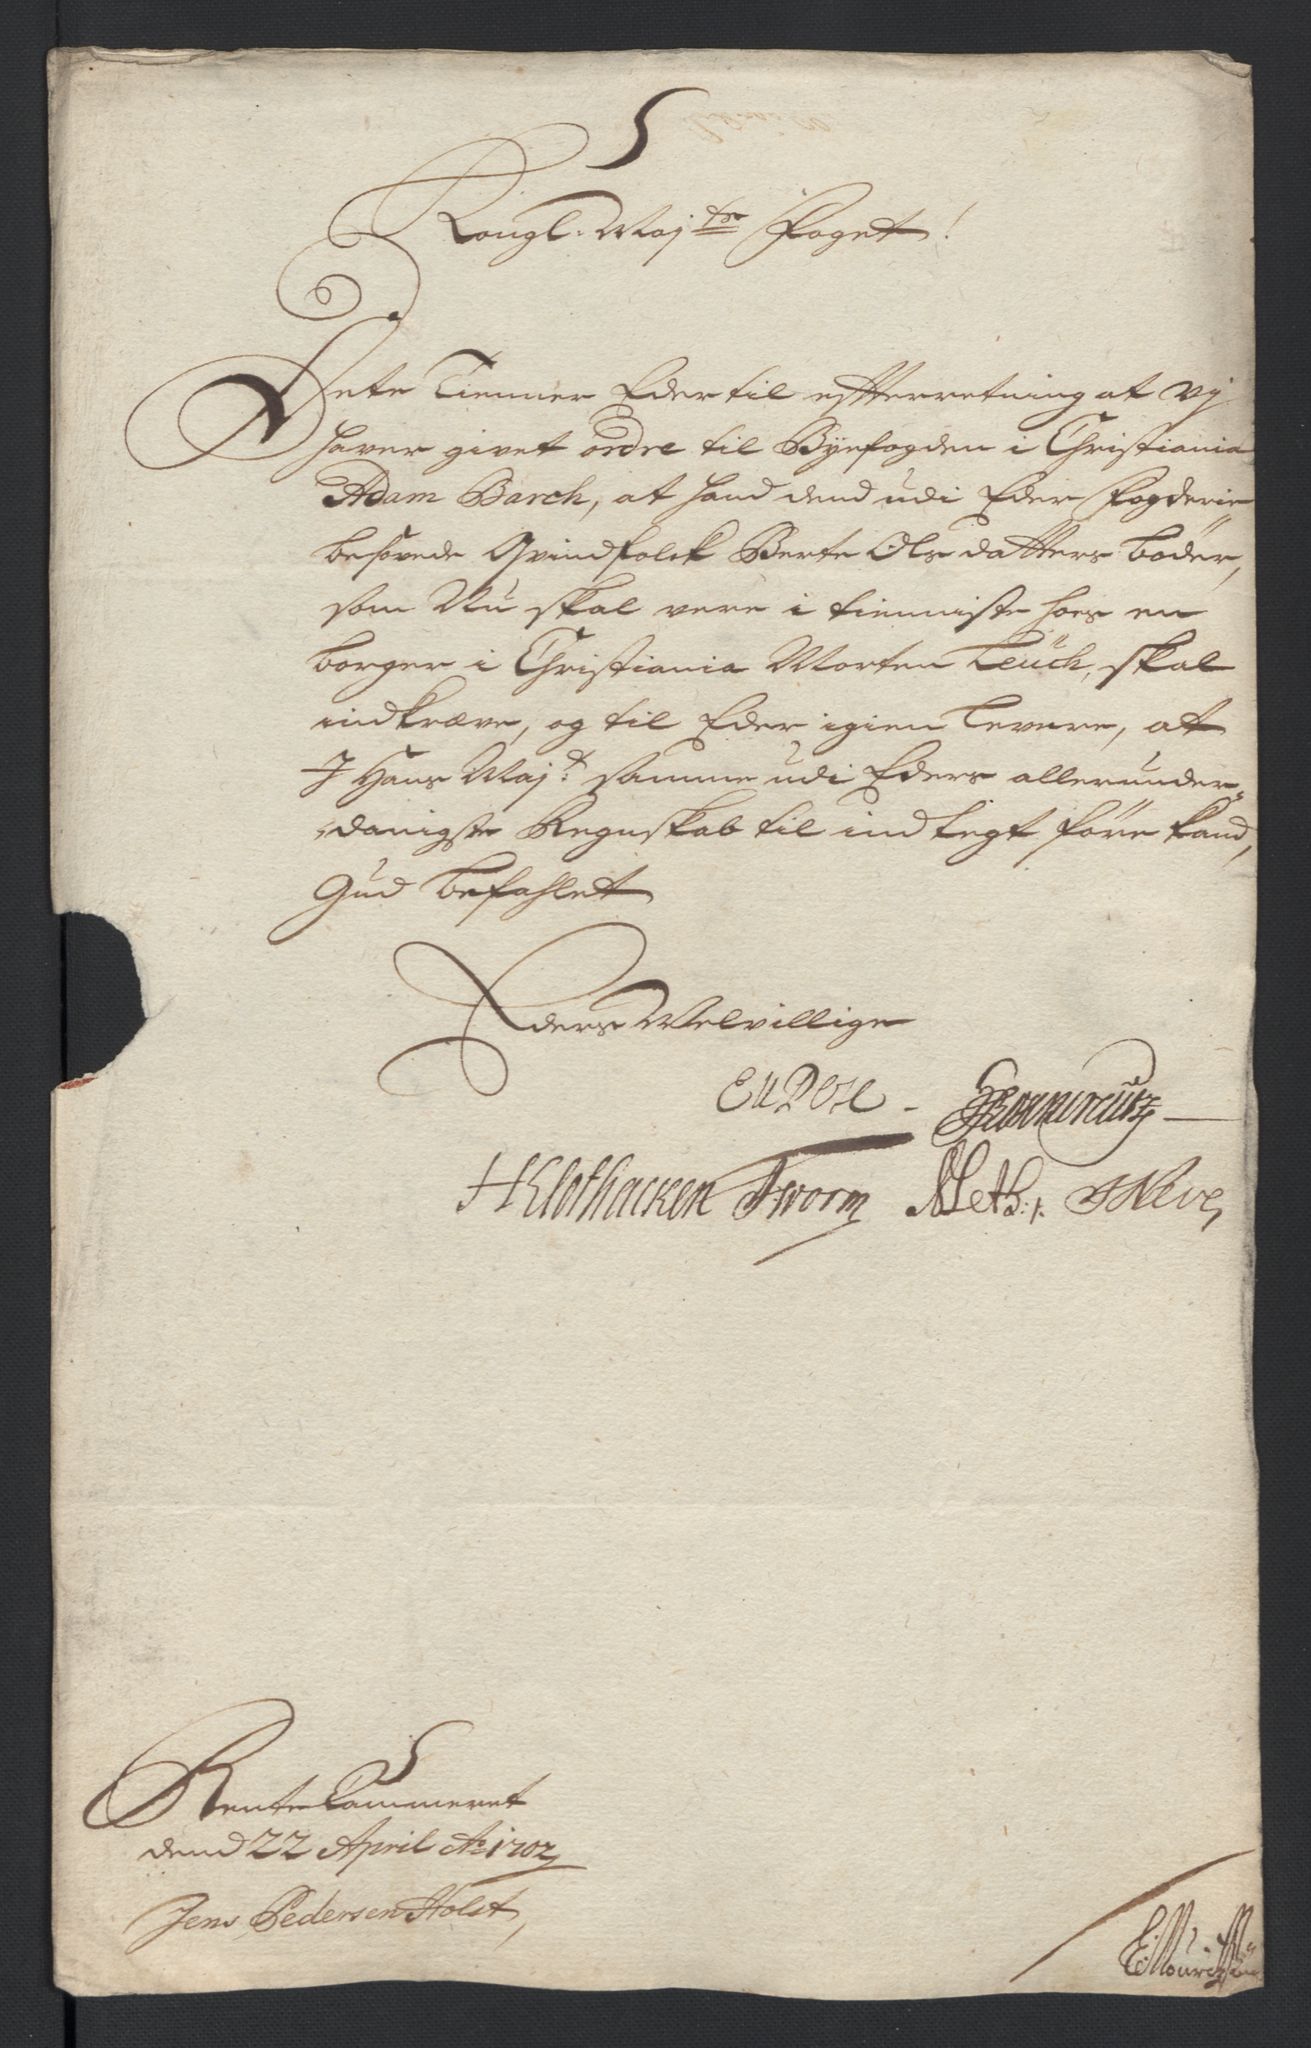 Kongl: Maj.tz Foget!
Dete Tienner Eder til eftterretning at vj
haver givet ordre til Byefogden i Christiania
Adam Barch, at hand dend udi Eder Fogderie
besovede Qvindfolck Berte Olsdatters böder,
som Nu skal vere i tienniste hoes en
borger i Christiania Morten Leuch, skal
indkræve, og til Eder igien levere, at
J Hans Maj.t samme udi Eders allerunder-
danigste Regnskab til indtegt före kand,
Gud befahlet
Eders Velvillige
H Klothacken T Worm
Rentekammeret
dend 22 April Ao 1702
Jens Pedersen Holst,